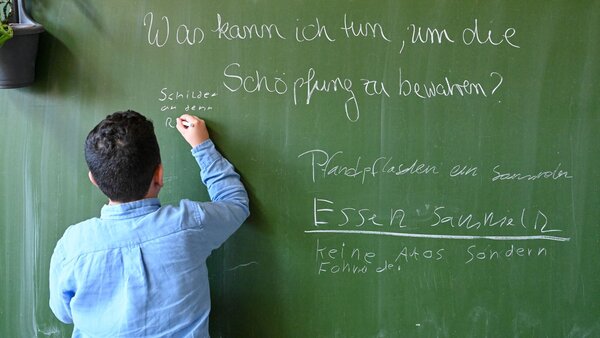 Was kann ich tun, um die
Schöpfung zu bewahren?
Schilder
an denn
R
Pfandpflaschen ein sammeln
Essen sammeln
keine Atos sondern
Fahrräder